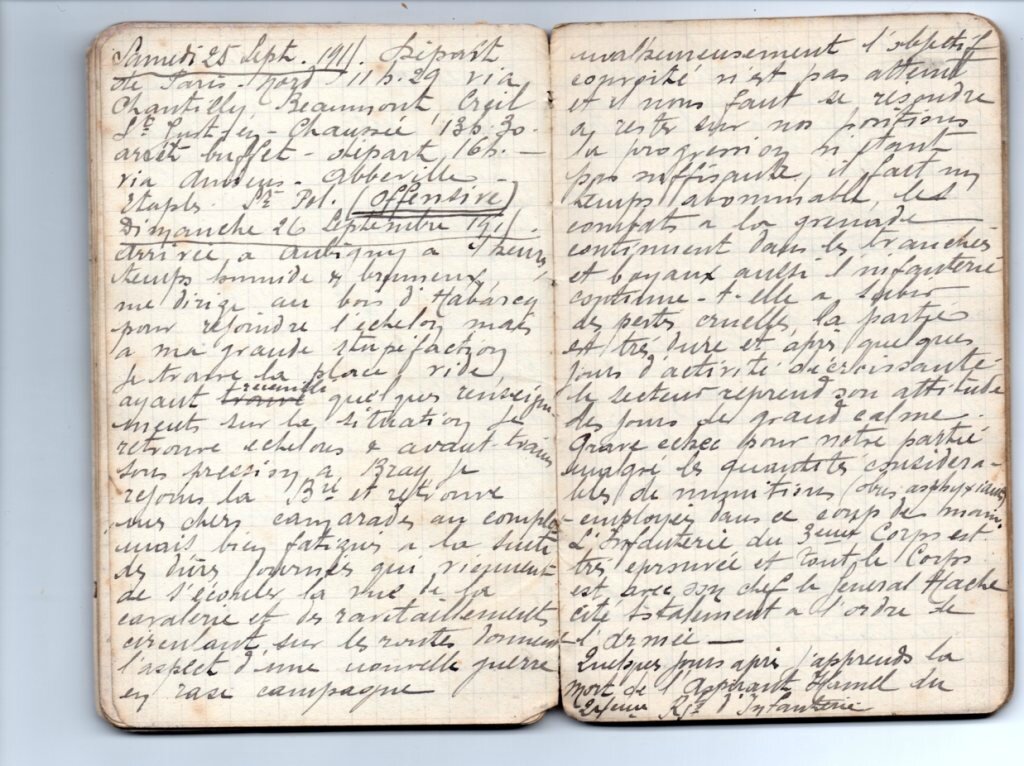 Samedi 25 Sept. 191/. Départ
de Paris-Nord 11h.29 via
Chantilly, Beaumont, Creil
St Just-en-Chaussée, 13h.30.
arrêt buffet - départ 16h. -
via Amiens. Abbeville -
Etaples. St Pol. (Offensive)
Dimanche 26 Septembre 191/.
arrivée a Aubigny a heures
temps humide & brumeux,
me dirige au bois d'Habarcq
pour rejoindre l'échelon mais
a ma grande stupéfaction
je trouve la place vide
ayant trouvé recueilli quelques renseigne
ments sur la situation je
retrouve echelons & avant-trains
sous pression a Bray je
rejoins la Bie et retrouve
mes chers camarades au complet
mais bien fatigués a la suite
des dures journées qui viennent
de s'écouler la vue de la
cavalerie et des ravitaillements
circulant sur les routes donnent
l'aspect d'une nouvelle guerre
en rase campagne
malheureusement l'objectif
convoité n'est pas atteint
et il nous faut se résoudre
a rester sur nos positions
la progression n'étant
pas suffisante, il fait un
temps abominable, les
combats a la grenade
continuent dans les tranchées
et boyaux aussi l'infanterie
continue-t-elle a subir
des pertes cruelles, la partie
est très dure et après quelques
jours d'activité décroissante
le secteur reprend son attitude
des jours de grand calme.
Grave echec pour notre partie
malgré les quantités considéra-
bles de munitions (obus asphyxiants
employés dans ce coup de main.
L'Infanterie du 3eme Corps est
très éprouvée et tout le Corps
est avec son chef le General Hache
cité totalement a l'ordre de
l'armée -
Quelques jours après j'apprends la
mort de l'Aspirant Hamel du
Rgt d'Infanterie